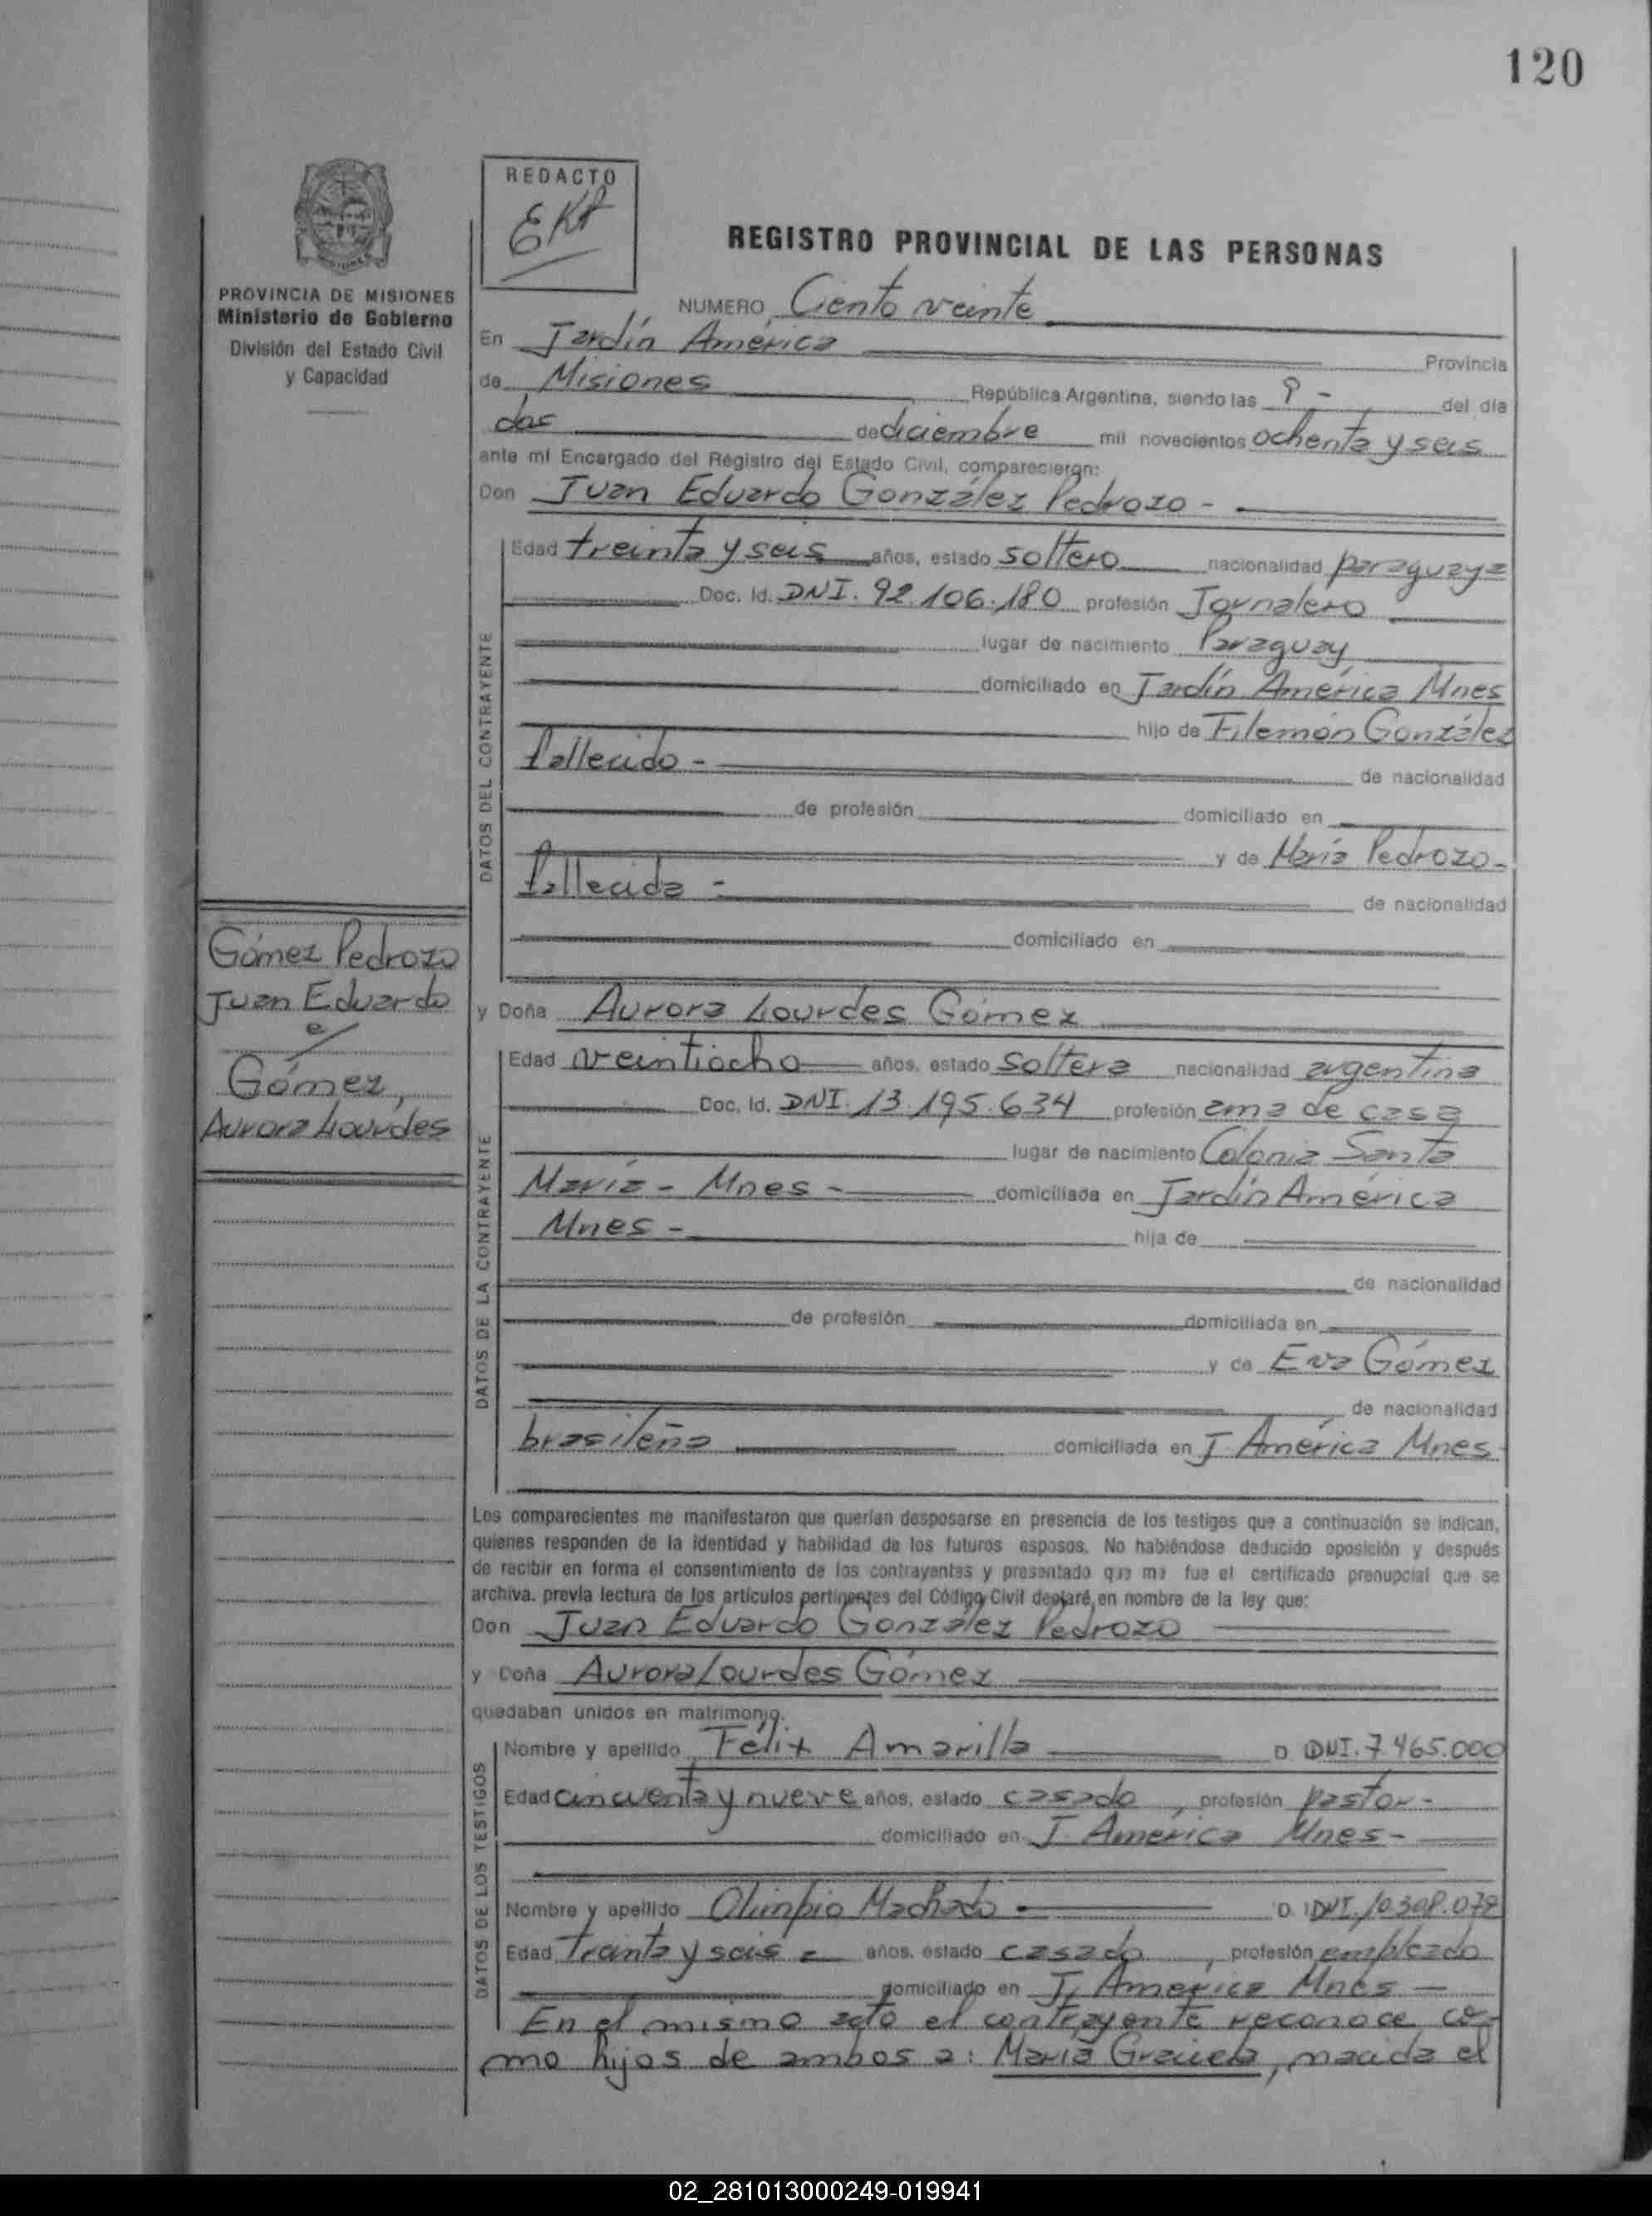 120
REDACTO
EKA
REGISTRO PROVINCIAL DE LAS PERSONAS
PROVINCIA DE MISIONES
Ministerio de Gobierno
División del Estado Civil
y Capacidad
NUMERO Ciento veinte
En Jardín América Provincia
de Misiones República Argentina, siendo las 9 - del día
dos de diciembre mil novecientos ochenta y seis
ante mí Encargado del Registro del Estado Civil, comparecieron:
Don Juan Eduardo González Pedrozo -
DATOS DEL CONTRAYENTE
Edad treinta y seis años, estado soltero nacionalidad paraguaya
Doc. Id. DNI. 92.106.180 profesión Jornalero
lugar de nacimiento Paraguay
domiciliado en Jardín América Mnes
hijo de Filemón González
fallecido - de nacionalidad
de profesión domiciliado en
y de María Pedrozo -
fallecida - de nacionalidad
domiciliado en
Gómez Pedrozo
Juan Eduardo
c/
Gómez,
Aurora Lourdes
y Doña Aurora Lourdes Gómez
DATOS DE LA CONTRAYENTE
Edad veintiocho años, estado soltera nacionalidad argentina
Doc. Id. DNI. 13.195.634 profesión ama de casa
lugar de nacimiento Colonia Santa
María - Mnes - domiciliada en Jardín América
Mnes - hija de
de nacionalidad
de profesión domiciliada en
y de Eva Gómez
de nacionalidad
brasileña domiciliada en J. América Mnes -
Los comparecientes me manifestaron que querían desposarse en presencia de los testigos que a continuación se indican,
quienes responden de la identidad y habilidad de los futuros esposos. No habiéndose deducido oposición y después
de recibir en forma el consentimiento de los contrayentes y presentado que me fue el certificado prenupcial que se
archiva. previa lectura de los artículos pertinentes del Código Civil declaré, en nombre de la ley que:
Don Juan Eduardo González Pedrozo
y Doña Aurora Lourdes Gómez
quedaban unidos en matrimonio.
DATOS DE LOS TESTIGOS
Nombre y apellido Félix Amarilla D DNI. 7.465.000
Edad cincuenta y nueve años, estado casado, profesión pastor -
domiciliado en J. America Mnes -
Nombre y apellido Olimpio Machado D. I DNI.
Edad treinta y seis - años. estado casado, profesión empleado
domiciliado en J. America Mnes -
En el mismo acto el contrayente reconoce co-
mo hijos de ambos a: María Graciela, nacida el
02_281013000249-019941